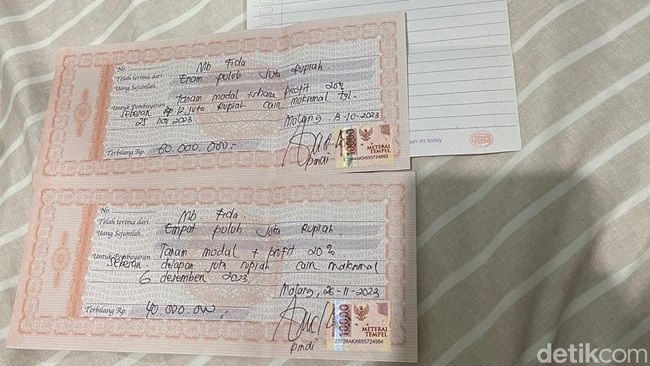 No.
Telah terima dari Mb Fida
Uang Sejumlah. Enam puluh Juta Rupiah
Untuk Pembayaran Tanam modal + share profit 20%
sebesar Rp 12 Juta Rupiah cair maksimal tgl.
25 Nov 2023
Malang 13-10-2023
Terbilang Rp. 60.000.000,-
10000
METERAI
TEMPEL
do today
No.
Telah terima dari Mb. Fida
Uang Sejumlah. Empat puluh Juta Rupiah.
Untuk Pembayaran Tanam modal + profit 20%
sebesar. delapan juta rupiah cair maksimal
6 desember 2023
Malang, 26-11-2023
Terbilang Rp. 40.000.000,-
10000
METERAI
TEMPEL
detikcom